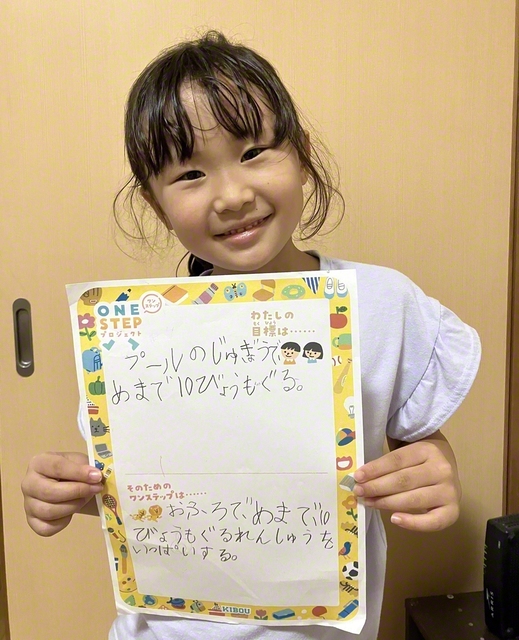 ONE
ワンステップ
STEP
プロジェクト
わたしの
もくひょう
目標は……
プールのじゅぎょうで
めまで10びょうもぐる。
そのための
ワンステップは……
おふろで、めまで、10
びょうもぐるれんしゅうを
いっぱいする。
KIBOU